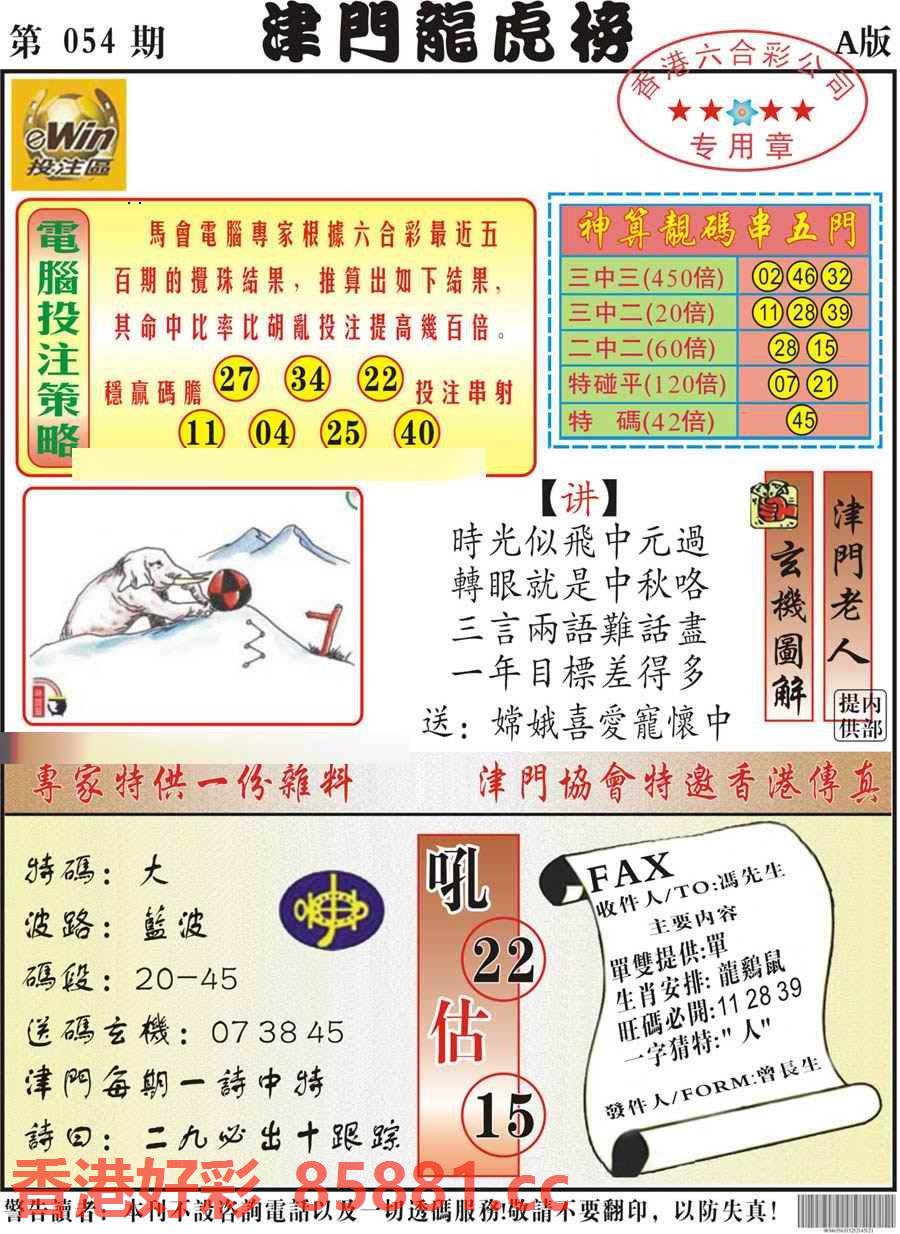 第 054 期
津門龍虎榜
A版
香港六合彩公司
专用章
eWin
投注區
電腦投注策略
馬會電腦專家根據六合彩最近五
百期的攪珠結果，推算出如下結果，
其命中比率比胡亂投注提高幾百倍。
穩贏碼膽 27 34 22 投注串射
11 04 25 40
神算靚碼串五門
三中三(450倍) 02 46 32
三中二(20倍) 11 28 39
二中二(60倍) 28 15
特碰平(120倍) 07 21
特 碼(42倍) 45
【讲】
時光似飛中元過
轉眼就是中秋咯
三言兩語難話盡
一年目標差得多
送：嫦娥喜愛寵懷中
玄機圖解
津門老人
内部
提供
專家特供一份雜料
津門協會特邀香港傳真
特碼：大
波路：藍波
碼段：20－45
送碼玄機：07 38 45
津門每期一詩中特
詩曰：二九必出十跟踪
吼
22
估
15
FAX
收件人/TO:馮先生
主要内容
單雙提供:單
生肖安排: 龍鷄鼠
旺碼必開:11 28 39
一字猜特:"人"
發件人/FORM:曾長生
香港好彩 85881.cc
警告讀者：本刊不設咨詢電話以及一切透碼服務!敬請不要翻印，以防失真！